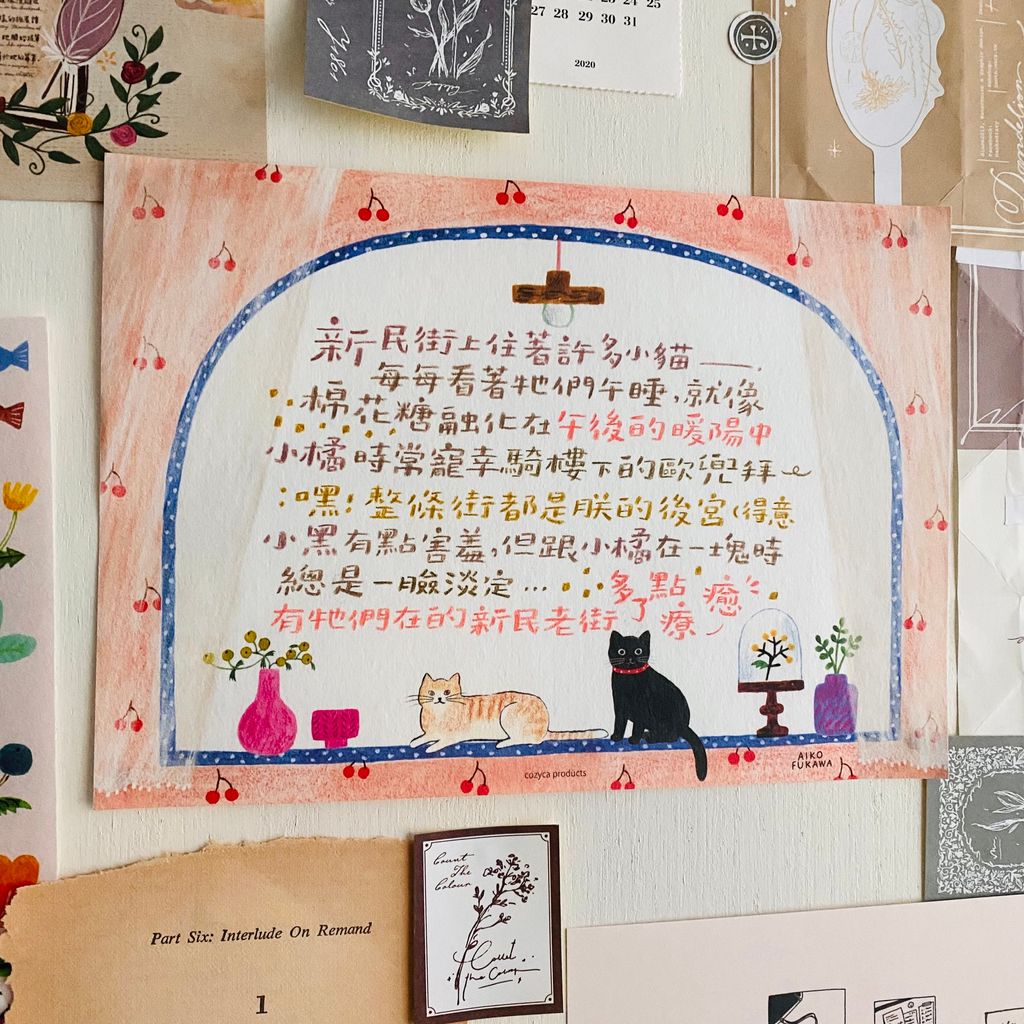 27 28 29 30 31
2020
新民街上住著許多小貓——,
每每看著牠們午睡,就像
棉花糖融化在午後的暖陽中
小橘時常寵幸騎樓下的歐兜拜~
:嘿!整條街都是朕的後宮(得意
小黑有點害羞,但跟小橘在一塊時
總是一臉淡定...
多了點療癒
有牠們在的新民老街
cozyca products
AIKO
FUKAWA
Count
The
Colour
Part Six: Interlude On Remand
1